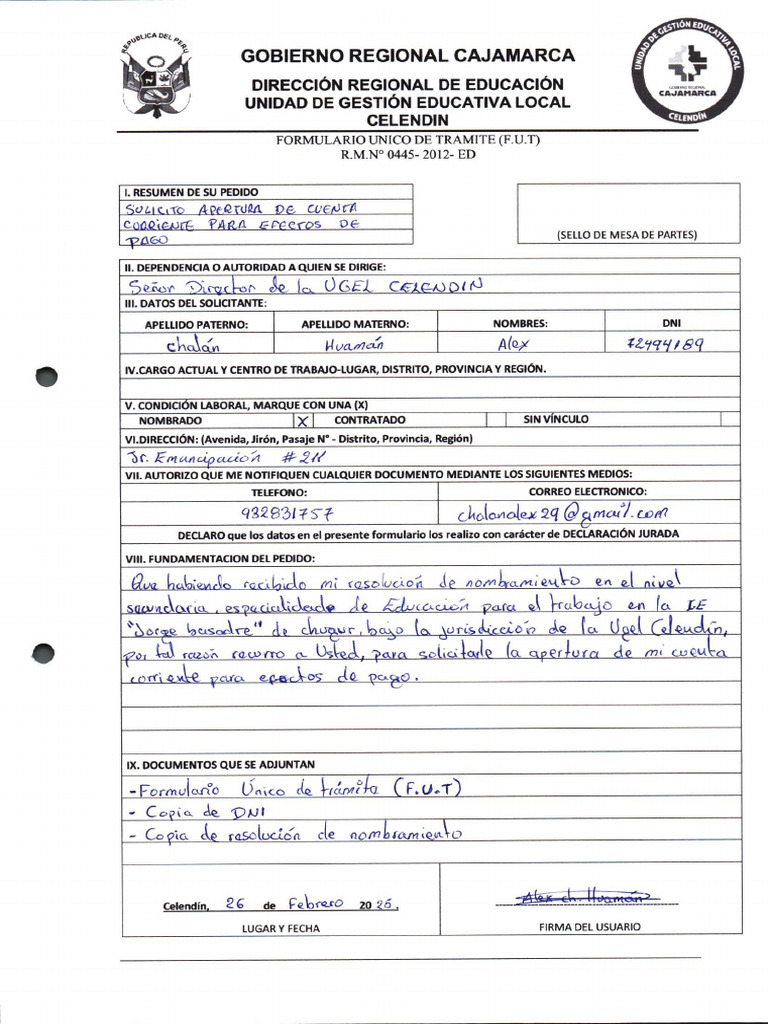 REPUBLICA DEL PERU
GOBIERNO REGIONAL CAJAMARCA
DIRECCIÓN REGIONAL DE EDUCACIÓN
UNIDAD DE GESTIÓN EDUCATIVA LOCAL
CELENDIN
UNIDAD DE GESTIÓN EDUCATIVA LOCAL
GOBIERNO REGIONAL
CAJAMARCA
CELENDÍN
FORMULARIO UNICO DE TRAMITE (F.U.T)
R.M.N° 0445- 2012- ED
I. RESUMEN DE SU PEDIDO
SOLICITO APERTURA DE CUENTA
CORRIENTE PARA EFECTOS DE
PAGO
(SELLO DE MESA DE PARTES)
II. DEPENDENCIA O AUTORIDAD A QUIEN SE DIRIGE:
Señor Director de la UGEL CELENDIN
III. DATOS DEL SOLICITANTE:
APELLIDO PATERNO: APELLIDO MATERNO: NOMBRES: DNI
Chalán Huamán Alex 72494189
IV.CARGO ACTUAL Y CENTRO DE TRABAJO-LUGAR, DISTRITO, PROVINCIA Y REGIÓN.
V. CONDICIÓN LABORAL, MARQUE CON UNA (X)
NOMBRADO X CONTRATADO SIN VÍNCULO
VI.DIRECCIÓN: (Avenida, Jirón, Pasaje N° - Distrito, Provincia, Región)
Jr. Emancipación # 211
VII. AUTORIZO QUE ME NOTIFIQUEN CUALQUIER DOCUMENTO MEDIANTE LOS SIGUIENTES MEDIOS:
TELEFONO: CORREO ELECTRONICO:
932831757 chalanalex29@gmail.com
DECLARO que los datos en el presente formulario los realizo con carácter de DECLARACIÓN JURADA
VIII. FUNDAMENTACION DEL PEDIDO:
Que habiendo recibido mi resolución de nombramiento en el nivel
secundaria, especialidade de Educación para el trabajo en la IE
"Jorge basadre" de chugur, bajo la jurisdicción de la Ugel Celendín,
por tal razón recurro a Usted, para solicitarle la apertura de mi cuenta
corriente para efectos de pago.
IX. DOCUMENTOS QUE SE ADJUNTAN
- Formulario Único de trámite (F.U.T)
- Copia de DNI
- Copia de resolución de nombramiento
Celendín, 26 de Febrero 2026.
LUGAR Y FECHA
Alex ch. Huamán
FIRMA DEL USUARIO